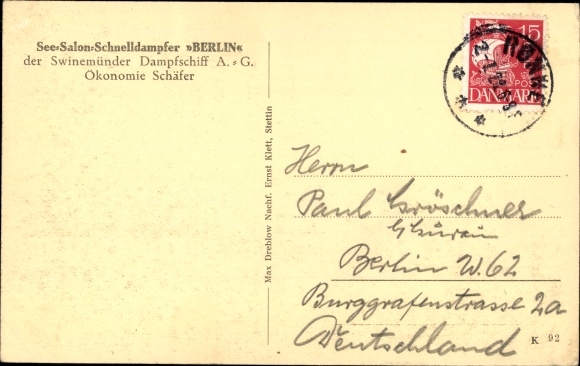 See-Salon-Schnelldampfer »BERLIN«
der Swinemünder Dampfschiff A.-G.
Ökonomie Schäfer
15
POST
DANMARK
RØNNE
Max Dreblow Nachf. Ernst Klett, Stettin
Herrn
Paul Gröschner
Berlin W.62
Burggrafenstrasse 2a
Deutschland
K 92